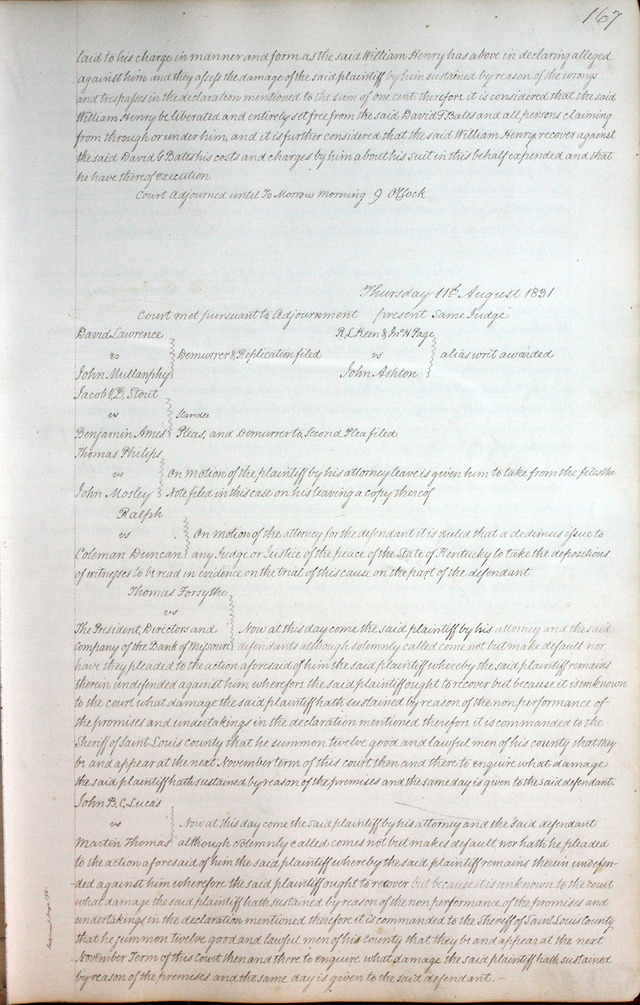 167
laid to his charge in manner and form as the said William Henry has above in declaring alleged
against him and they assess the damage of the said plaintiff by him sustained by reason of the wrongs
and trespasses in the declaration mentioned to the sum of one cent. therefore it is considered that the said
William Henry be liberated and entirely set free from the said David G Bates and all persons claiming
from through or under him, and it is further considered that the said William Henry recover against
the said David G Bates his costs and charges by him about his suit in this behalf expended and that
he have thereof execution
Court Adjourned until To Morrow morning 9 O'Clock
Thursday 11th August 1831
Court met pursuant to Adjournment present Same Judge
David Lawrence
vs Demurrer & Replication filed
John Mullanphy
R. L. Keen & Jno H Page
vs alias writ awarded
John Ashton
Jacob V. D. Stout
vs Slander
Benjamin Ames Pleas, and Demurrer to Second Plea filed
Thomas Philips
vs On motion of the plaintiff by his attorney leave is given him to take from the files the
John Mosley Note filed in this case on his leaving a copy thereof
Ralph
vs On motion of the attorney for the defendant it is ruled that a dedimus issue to
Coleman Duncan any Judge or Justice of the peace of the State of Kentucky to take the depositions
of witnesses to be read in evidence on the trial of this cause on the part of the defendant
Thomas Forsythe
vs
The President, Directors and Now at this day come the said plaintiff by his attorney and the said
Company of the Bank of Missouri defendants although solemnly called come not but make default nor
have they pleaded to the action aforesaid of him the said plaintiff whereby the said plaintiff remains
therein undefended against him wherefore the said plaintiff ought to recover but because it is unknown
to the court what damage the said plaintiff hath sustained by reason of the nonperformance of
the promises and undertakings in the declaration mentioned therefore it is commanded to the
Sheriff of Saint Louis county that he summon twelve good and lawful men of his county that they
be and appear at the next November term of this court then and there to enquire what damage
the said plaintiff hath sustained by reason of the premises and the same day is given to the said defendant.
John B. C. Lucas
vs Now at this day come the said plaintiff by his attorney and the said defendant
Martin Thomas although solemnly called comes not but makes default nor hath he pleaded
to the action aforesaid of him the said plaintiff whereby the said plaintiff remains therein undefen-
-ded against him wherefore the said plaintiff ought to recover but because it is unknown to the court
what damage the said plaintiff hath sustained by reason of the nonperformance of the promises and
undertakings in the declaration mentioned therefore it is commanded to the Sheriff of Saint Louis County
that he summon twelve good and lawful men of his county that they be and appear at the next
November Term of this Court then and there to enquire what damage the said plaintiff hath sustained
by reason of the premises and the same day is given to the said defendant. -